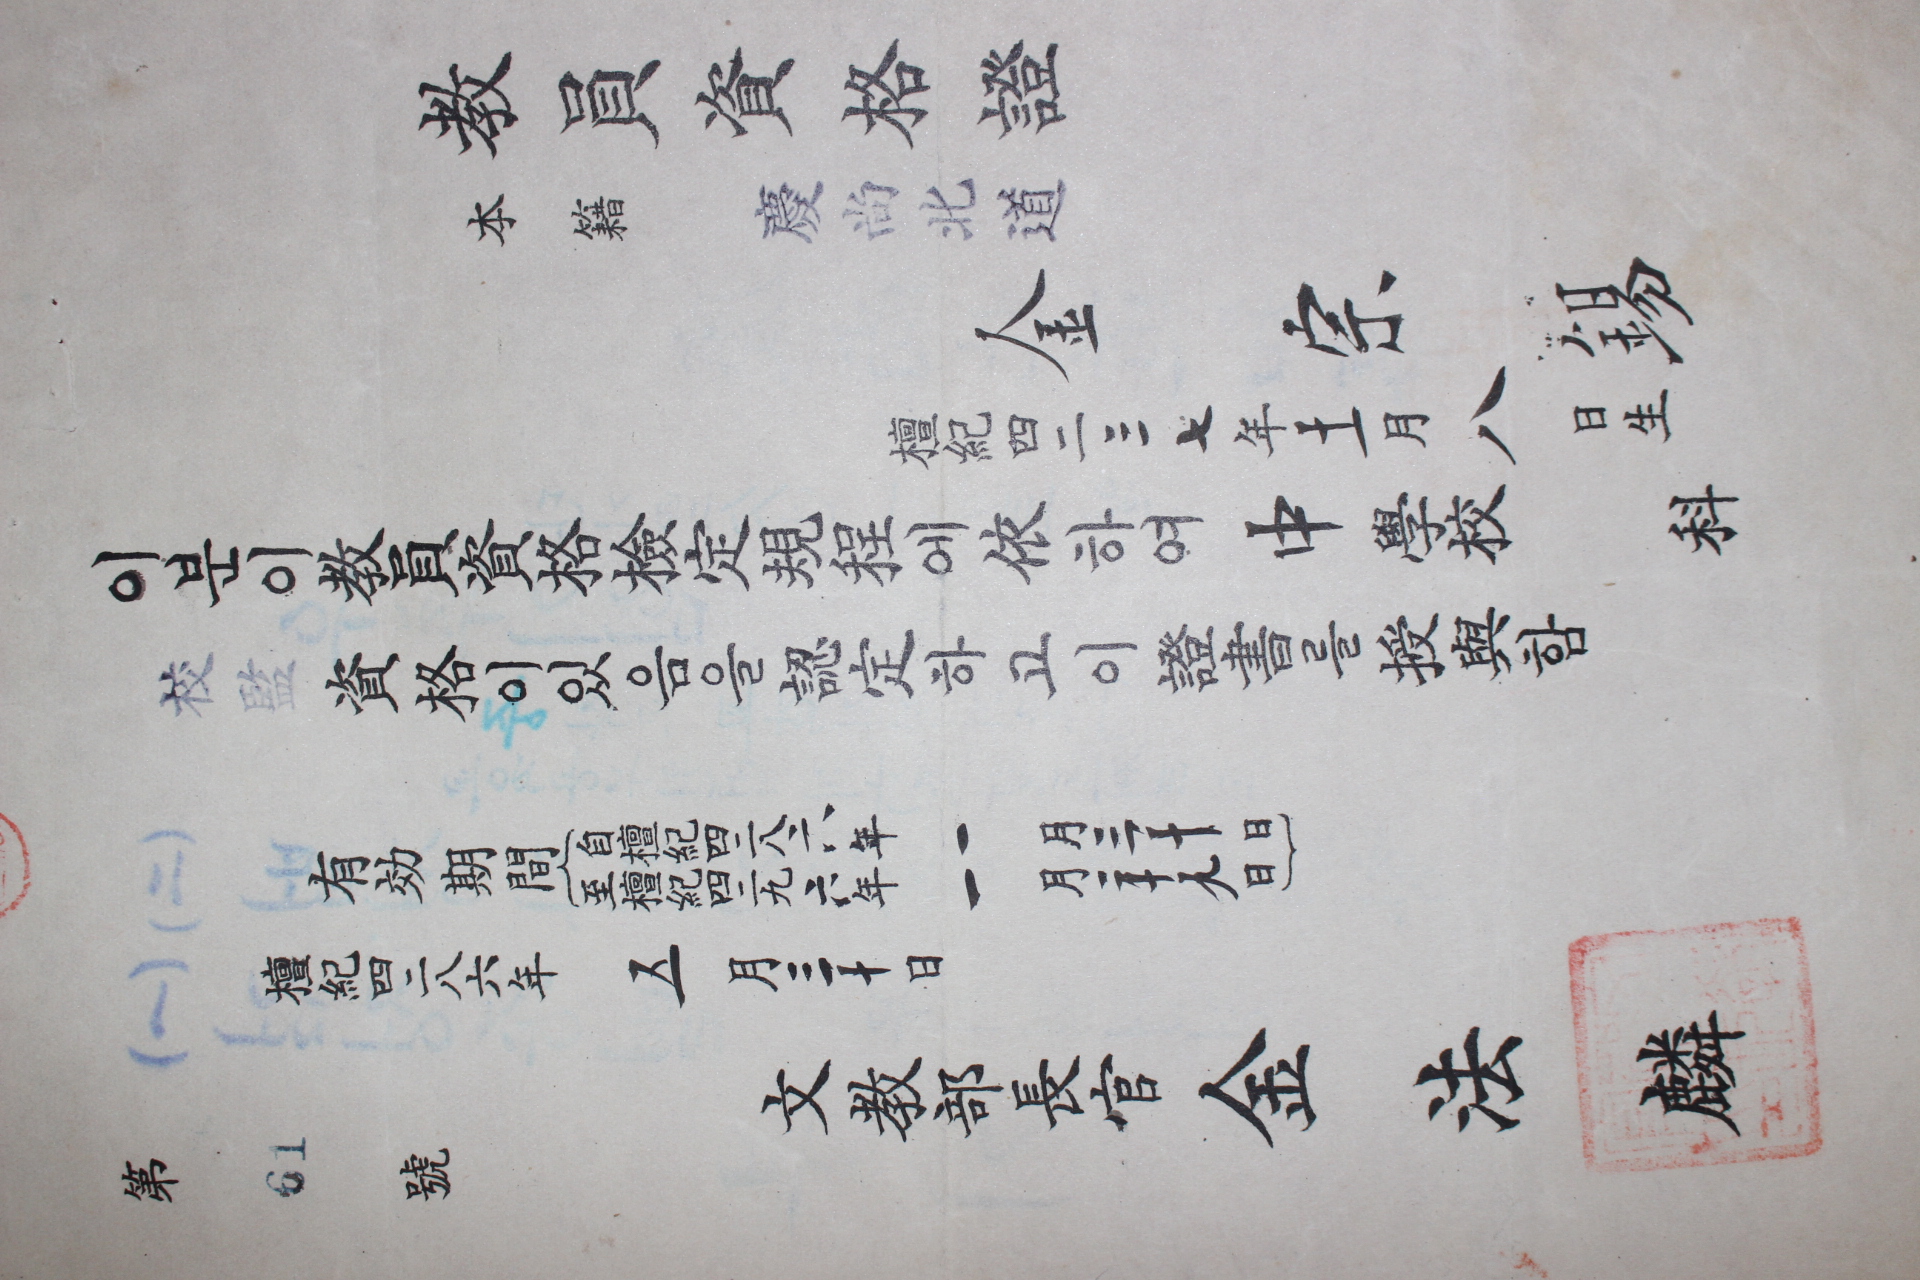 教員資格證
本籍 慶尚北道
金宗錫
檀紀四二三七年十一月八日生
이분이教員資格檢定規程에依하여 中學校 科
校監 資格이있음을認定하고이證書를授與함
有効期間
自檀紀四二八六年一月三十日
至檀紀四二九六年一月二十九日
檀紀四二八六年 五月三十日
文教部長官 金法麟
第 61 號
(二)
(一)